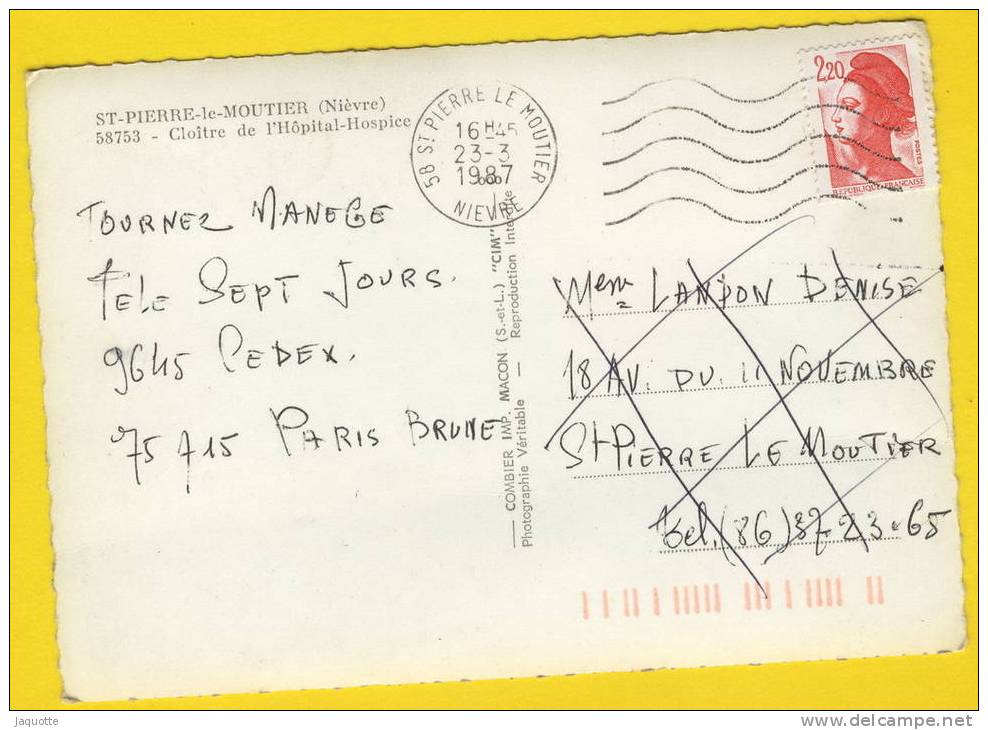 ST-PIERRE-le-MOUTIER (Nièvre)
58753 - Cloître de l'Hôpital-Hospice
58 ST PIERRE LE MOUTIER
16H45
23-3
1987
NIEVRE
2,20
POSTES
REPUBLIQUE FRANÇAISE
TOURNEZ MANEGE
TELE SEPT JOURS.
9645 CEDEX.
75 715 PARIS BRUNE
COMBIER IMP. MACON (S.-et-L.) "CIM"
Photographie Véritable — Reproduction Interdite
Mem LANDON DENISE
18 AV. DU. 11 NOVEMBRE
St PIERRE LE MOUTIER
tel. (86) 37-23-65
Jaquotte
www.delcampe.net